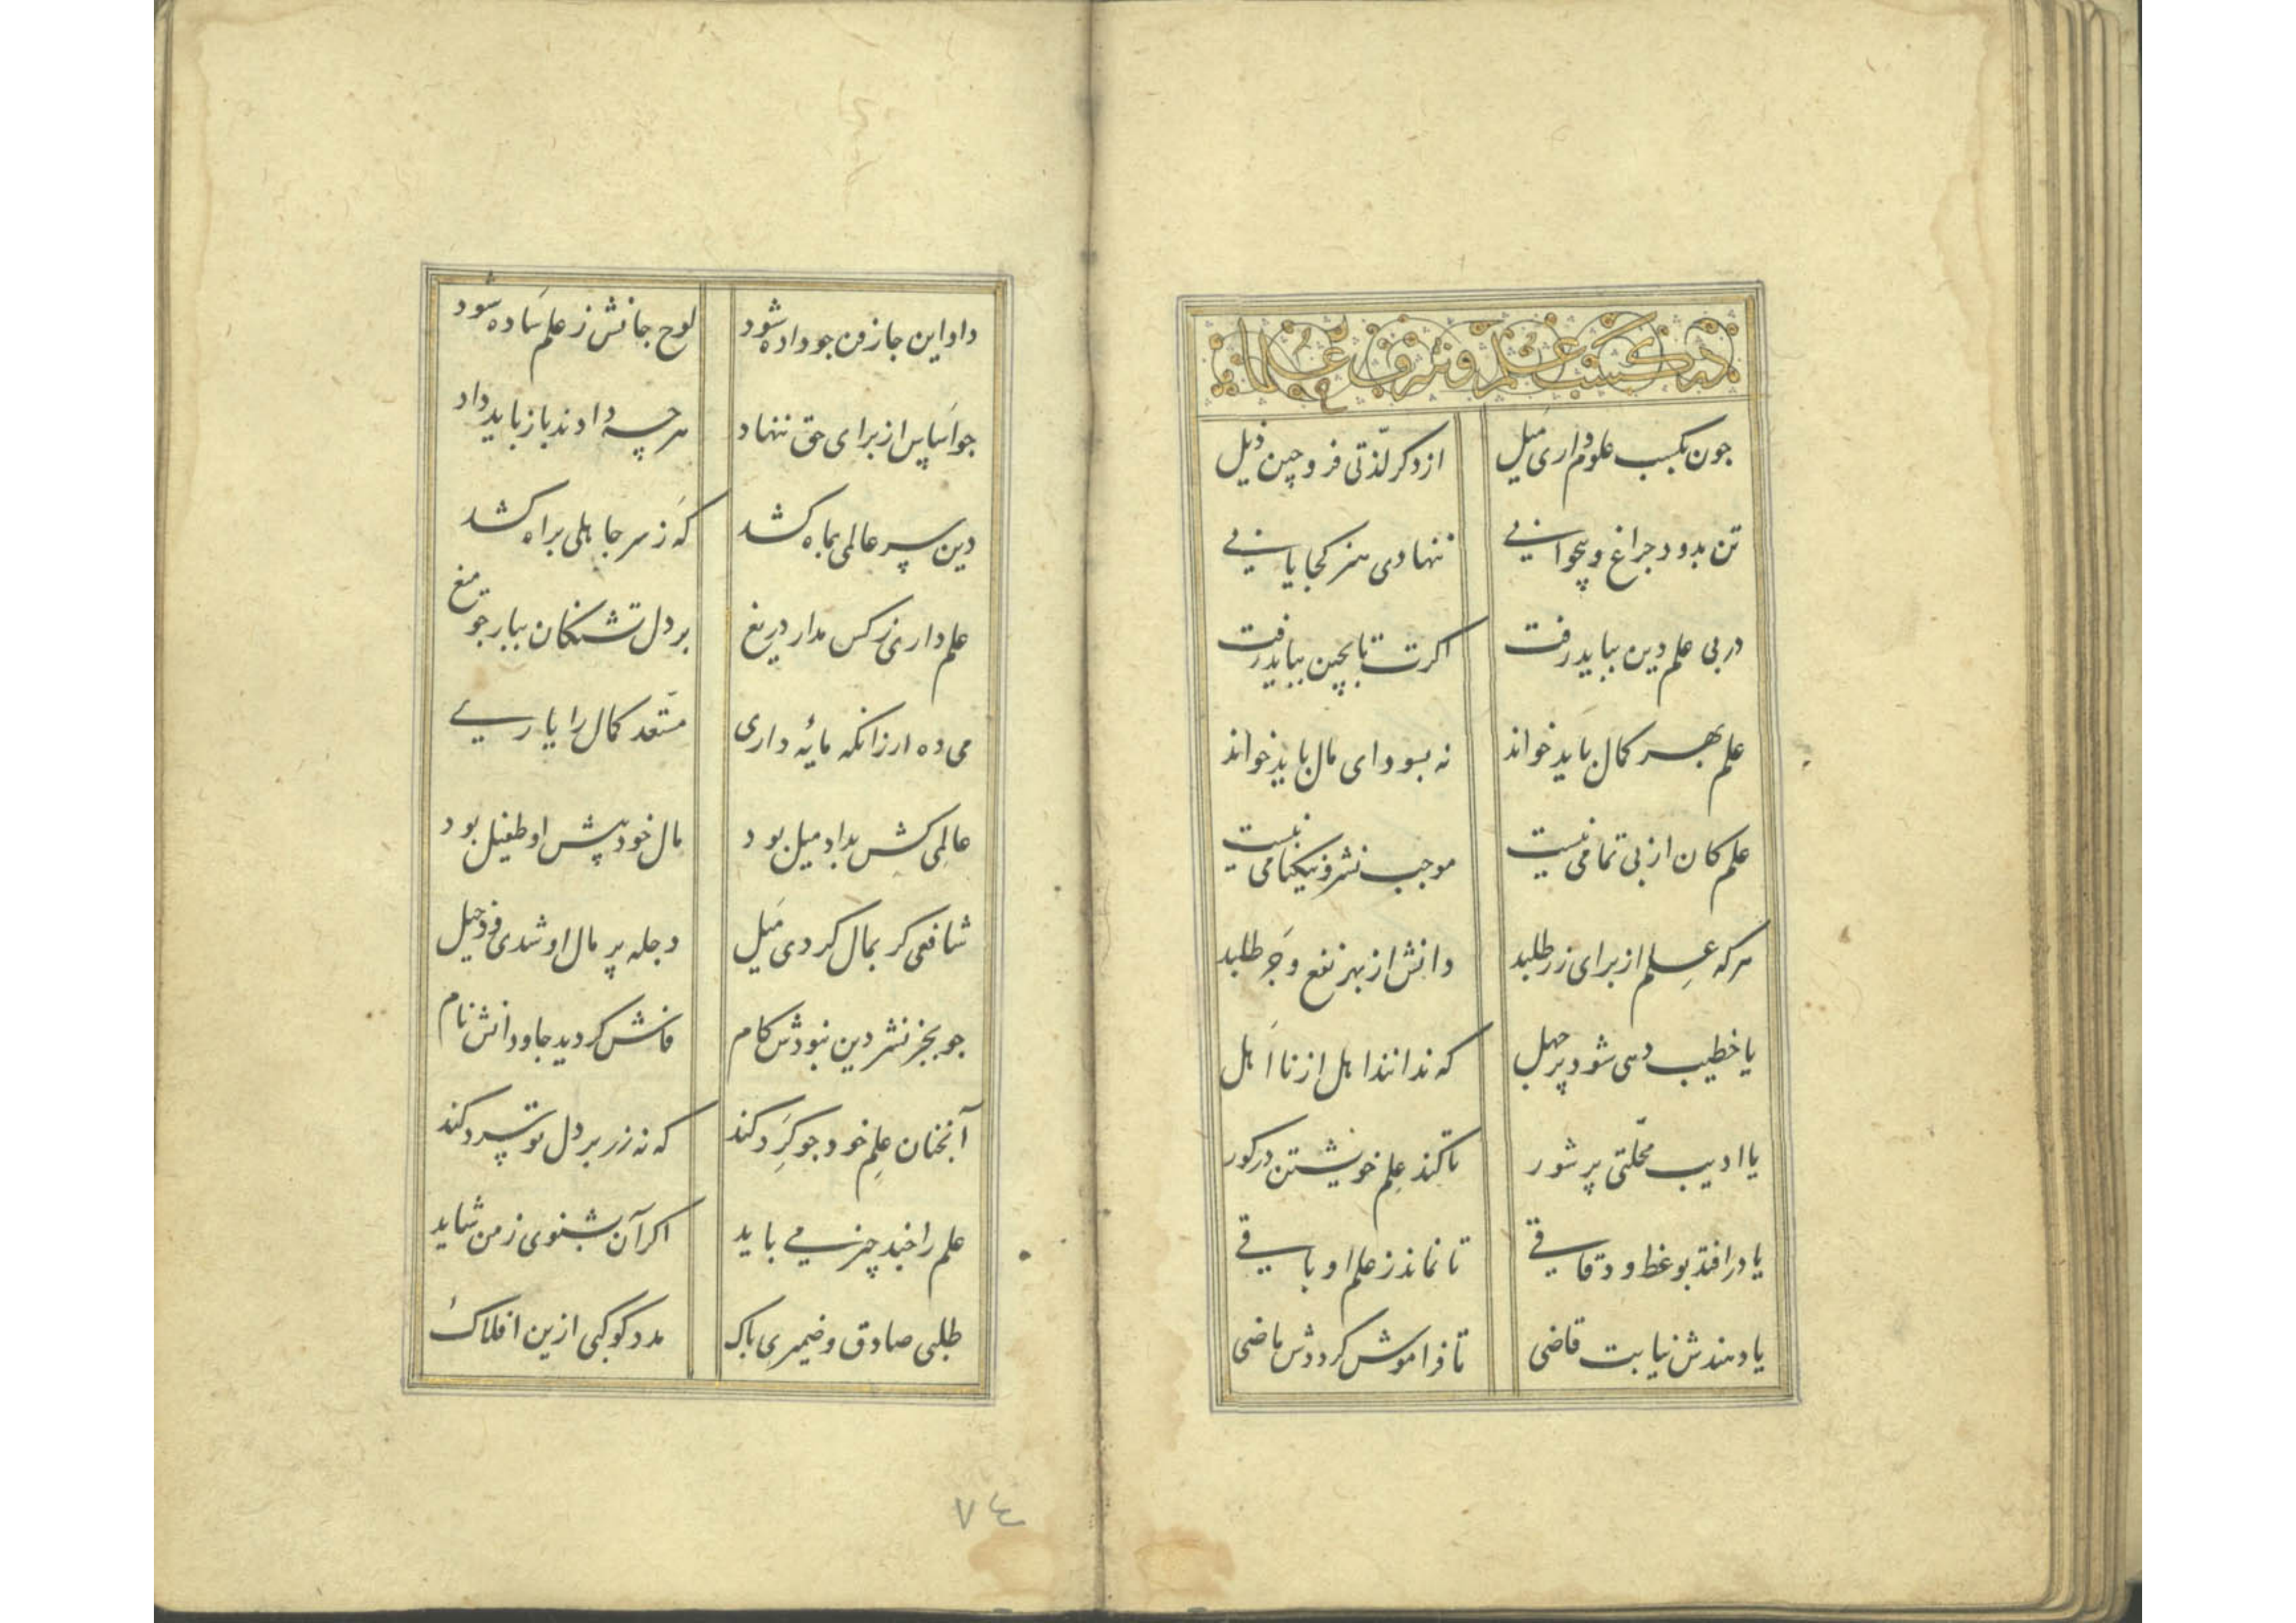 در کسب علم و شرف علما
جون بکسب علوم داری میل    از دکر لذتی فرو چین ذیل
تن بدود جراغ و بیخوابی    ننهادی هنر کجا یابی
در بی علم دین بباید رفت    اکرت تا بچین بباید رفت
علم بهر کمال باید خواند    نه بسودای مال باید خواند
علم کان از بی تمامی نیست    موجب نشر و نیکنامی نیست
هرکه علم از برای زر طلبد    دانش از بهر نفع و جر طلبد
یا خطیب دهی شود بر جهل    که ندانند اهل از نااهل
یا ادیب محلتی پر شور    تا کند علم خویشتن در کور
یا در افتد بوعظ و دقاقی    تا نماند ز علم او باقی
یا دهندش نیابت قاضی    تا فراموش کرددش ماضی
داد این جاز فن جو داده شود    لوح جانش ز علم ساده شود
جو اساس از برای حق ننهاد    هرچه دادند باز باید داد
دین سر عالمی بماه کشد    که ز سر جاهلی براه کشد
علم داری ز کس مدار دریغ    بر دل تشنکان ببار جو میغ
می ده ار زانکه مایه داری    مستعد کمال را یاریی
عالمی کش بداد میل بود    مال خود پیش او طفیل بود
شافعی کر بمال کردی میل    دجله پر مال او شدی و دجیل
جو بجز نشر دین نبودش کام    فاش کردید جاودانش نام
آنجنان علم خود جو کرد کند    که نه زر بر دل تو سرد کند
علم را جند چیز می باید    اکر آن بشنوی ز من شاید
طلبی صادق و ضمیری باک    مدد کوکبی ازین افلاک
٧٤